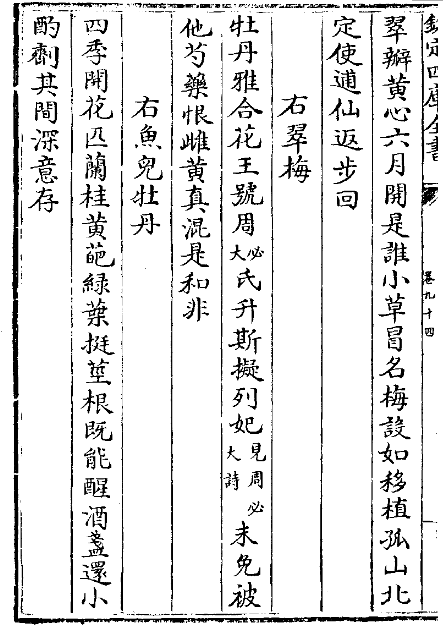 欽定四庫全書
卷九十四
翠瓣黃心六月開是誰小草冒名梅設如移植孤山北
定使逋仙返步回
右翠梅
牡丹雅合花王號周必大氏升斯擬列妃見周必大詩未免被
他芍藥恨雌黃真混是和非
右魚兒牡丹
四季開花匹蘭桂黃葩綠葉挺莖根既能醒酒盞還小
酌劑其間深意存